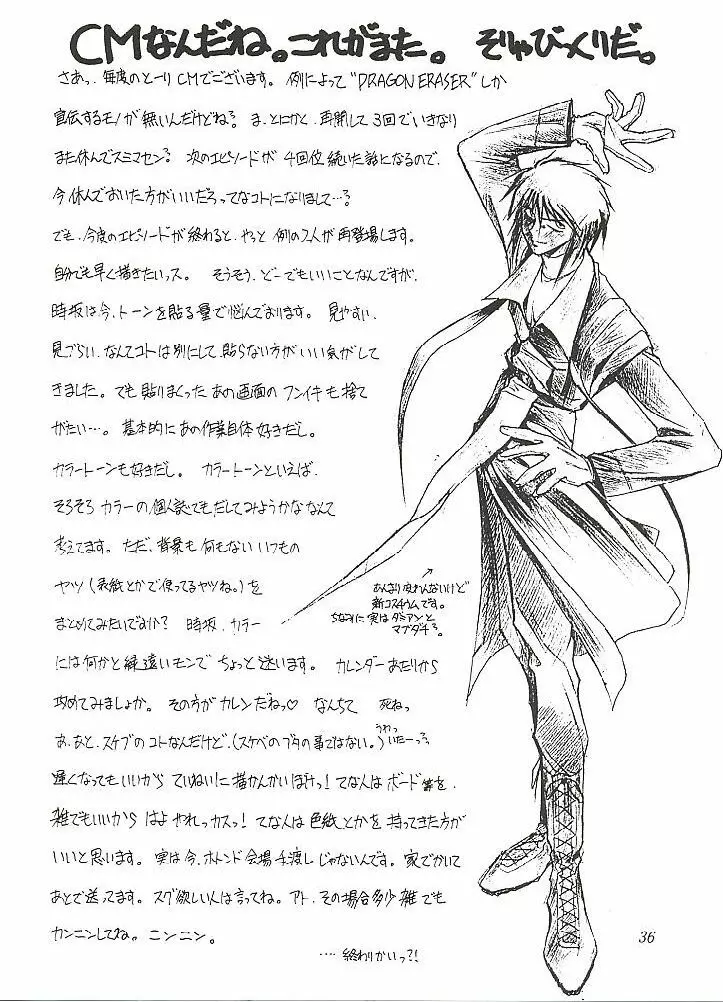 CMなんだね。これがまた。 そりゃびっくりだ。
さあっ、毎度のとーりCMでございます。 例によって"DRAGON ERASER"しか
宣伝するモノが無いんだけどね? ま、とにかく、再開して3回でいきなり
また休んでスミマセン? 次のエピソードが 4回位続いた話になるので、
今休んでおいた方がいいだろってなコトになりまして…?
でも、今度のエピソードが終わると、やっと例の2人が再登場します。
自分でも早く描きたいッス。 そうそう、どーでもいいことなんですが、
時坂は今、トーンを貼る量で悩んでおります。 見やすい、
見づらい、なんてコトは別にして、貼らない方がいい気がして
きました。でも貼りまくったあの画面のフンイキも捨て
がたい…。 基本的にあの作業自体好きだし。
カラートーンも好きだし。 カラートーンといえば、
そろそろカラーの個人誌でもだしてみようかななんて
考えてます。ただ、背景も何もないいつもの
ヤツ(表紙とかで使ってるヤツね。)を
まとめてみたいでなか? 時坂、カラー
には何かと縁遠いモンでちょっと迷います。 カレンダーあたりから
攻めてみましょか。 その方がカレンだねっ♡ なんちて 死ねっ
お、あと、スケブのコトなんだけど、(スケベのブタの事ではない。)うわっいたーっ?
遅くなってもいいから ていねいに描かんかいぼけっ! てな人はボード等を、
雑でもいいから はよ やれっカスっ! てな人は色紙とかを持ってきた方が
いいと思います。 実は今、ホトンド会場手渡しじゃないんです。 家でかいて
あとで送ってます。 スグ欲しい人は言ってね。 アト、その場合多少雑でも
カンニンしてね。 ニンニン。
…. 終わりかいっ?!
あんまり変れんないけど
新コスチウムです。
ちなみに実はダミアンと
マブダチ?。
36